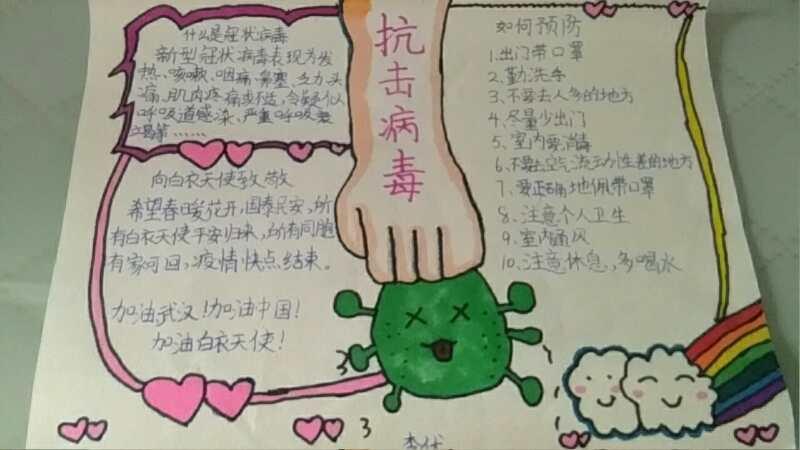 什么是冠状病毒
新型冠状病毒表现为发
热、咳嗽、咽痛、鼻塞、乏力、头
痛、肌肉疼痛或不适,
呼吸道感染、严重呼吸
……
向白衣天使致敬
希望春日暖花开,国泰民安,所
有白衣天使平安归来,所有同胞
有家可回,疫情快点结束。
加油武汉!加油中国!
加油白衣天使!
抗击病毒
如何预防
1.出门带口罩
2.勤洗手
3.不要去人多的地方
4.尽量少出门
5.室内要消毒
6.不要去空气流动性差的地方
7.要正确地佩带口罩
8.注意个人卫生
9.室内通风
10.注意休息,多喝水
3
3